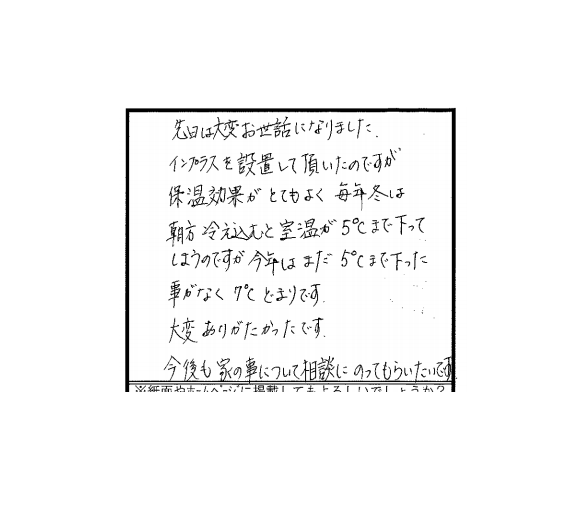 先日は大変お世話になりました.
インプラスを設置して頂いたのですが
保温効果がとてもよく 毎年冬は
朝方 冷え込むと室温が 5℃まで下って
しまうのですが今年は まだ 5℃まで下った
事がなく 7℃ どまりです.
大変 ありがたかったです.
今後も 家の事について相談に のってもらいたいです
※紙面やホームページに掲載してもよろしいでしょうか？